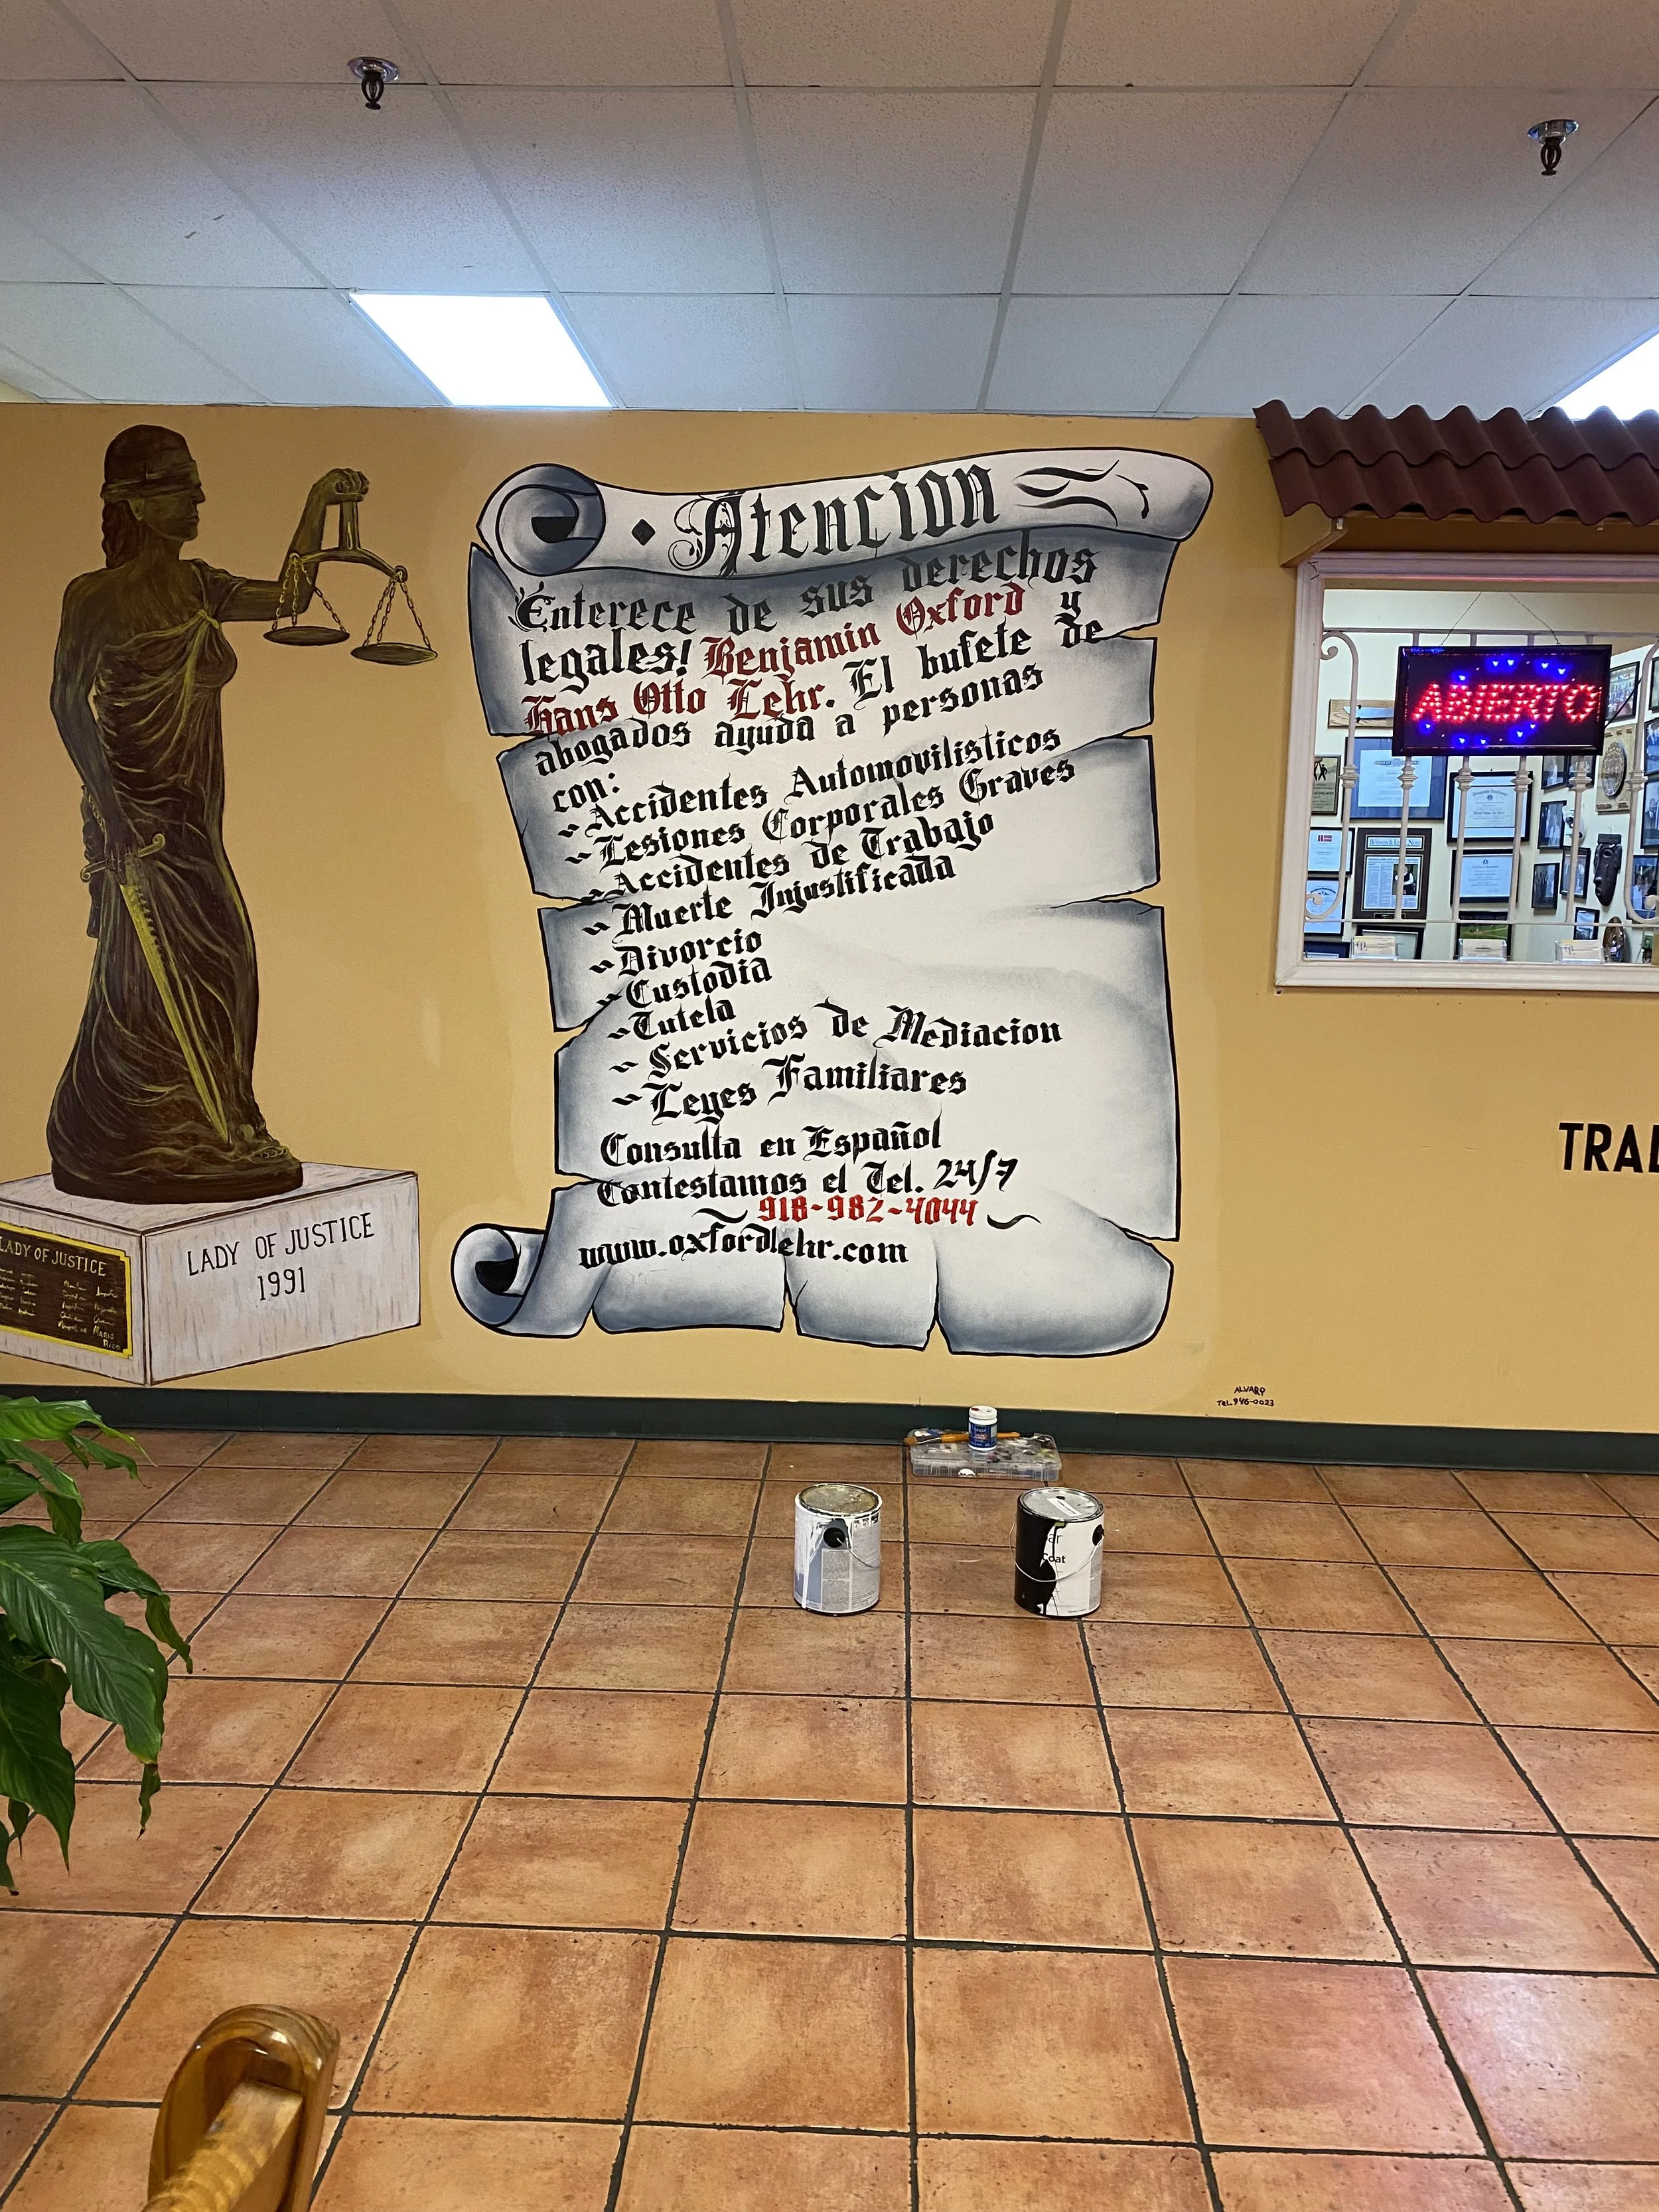 Atencion
Enterece de sus derechos
legales! Benjamin Oxford y
Hans Otto Lehr. El bufete de
abogados ayuda a personas
con:
~Accidentes Automovilisticos
~Lesiones Corporales Graves
~Accidentes de Trabajo
~Muerte Injustificada
~Divorcio
~Custodia
~Tutela
~Servicios de Mediacion
~Leyes Familiares
Consulta en Español
Contestamos el Tel. 24/7
~918-982-4044~
www.oxfordlehr.com
LADY OF JUSTICE
1991
LADY OF JUSTICE
ABIERTO
ALVARO
TEL. 946-0023
Coat